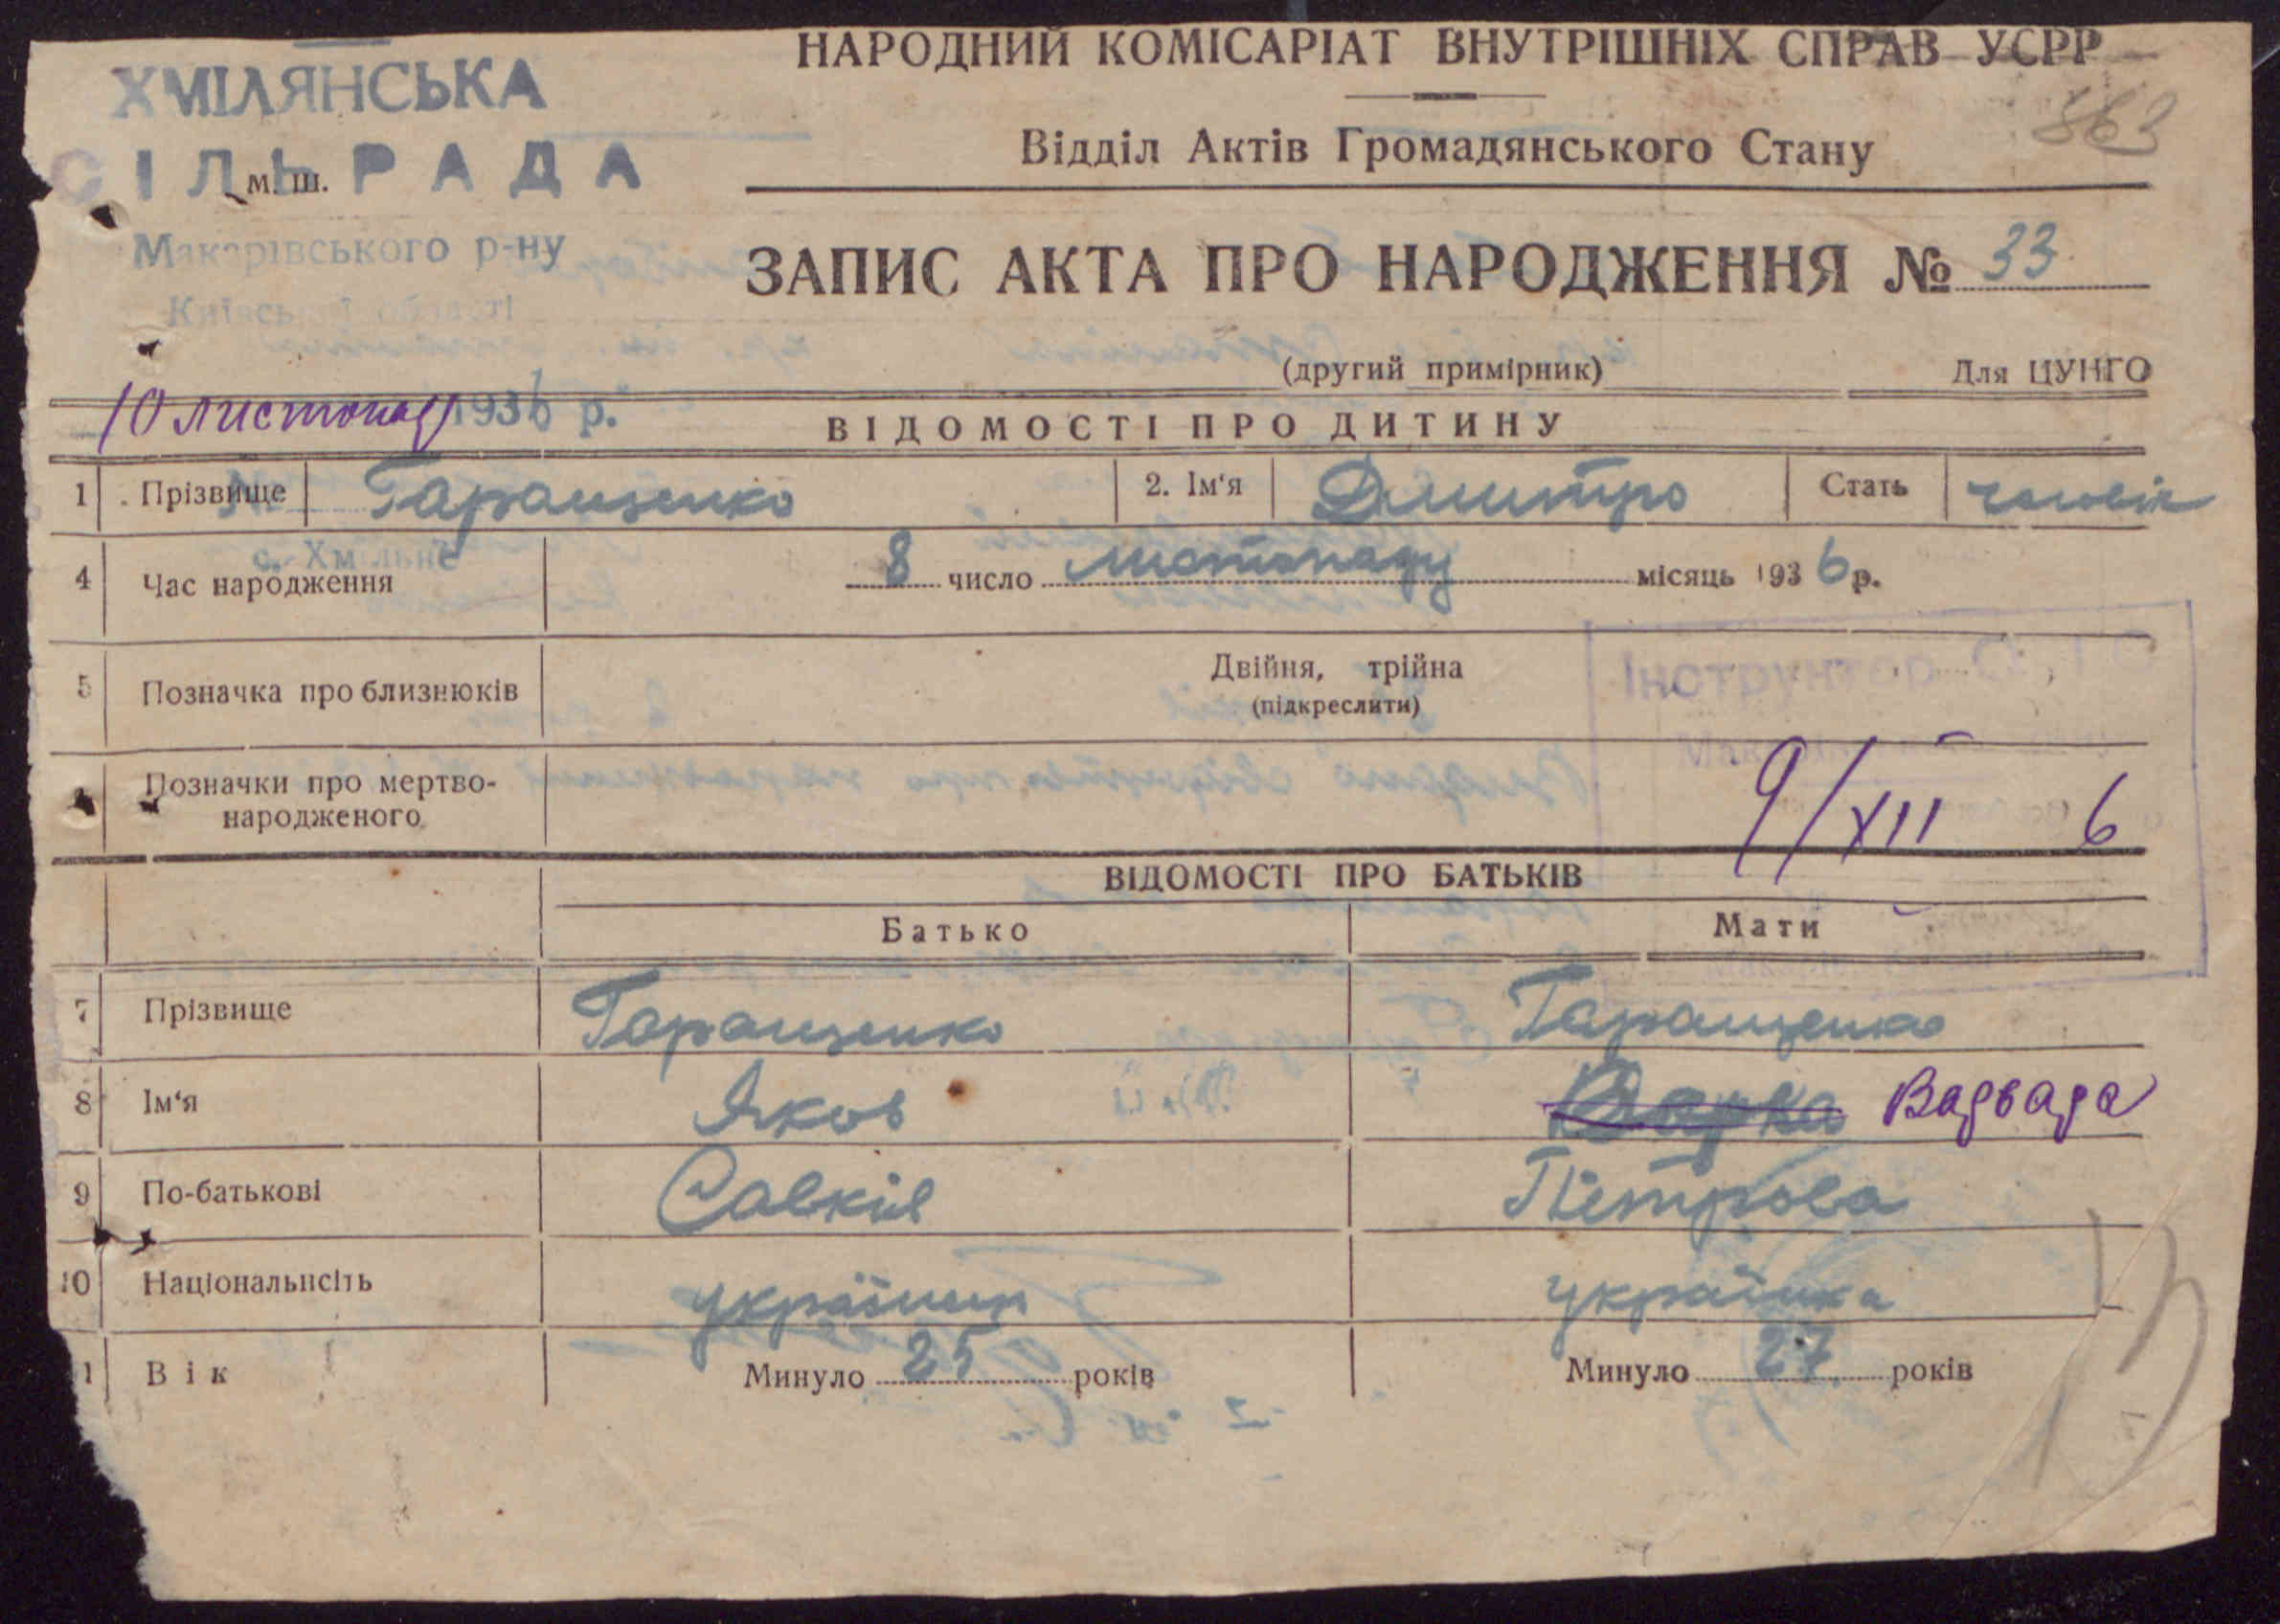 НАРОДНИЙ КОМІСАРІАТ ВНУТРІШНІХ СПРАВ УСРР
ХМІЛЯНСЬКА
СІЛЬРАДА
м. ш.
Макарівського р-ну
Київської області
10 листопад 1936 р.
№
с. Хмільне
863
Відділ Актів Громадянського Стану
ЗАПИС АКТА ПРО НАРОДЖЕННЯ № 33
(другий примірник) Для ЦУНГО
ВІДОМОСТІ ПРО ДИТИНУ
1 Прізвище Таращенко 2. Ім'я Дмитро Стать чоловік
4 Час народження 8 число листопаду місяць 1936 р.
5 Позначка про близнюків Двійня, трійна
(підкреслити)
Інструктор
Позначки про мертво-
народженого
9/XII 6
ВІДОМОСТІ ПРО БАТЬКІВ
Батько Мати
7 Прізвище Таращенко Таращенко
8 Ім'я Яков Варка Варвара
9 По-батькові Савків Петрова
10 Національнсіть українець українка
1 Вік Минуло 25 років Минуло 27 років